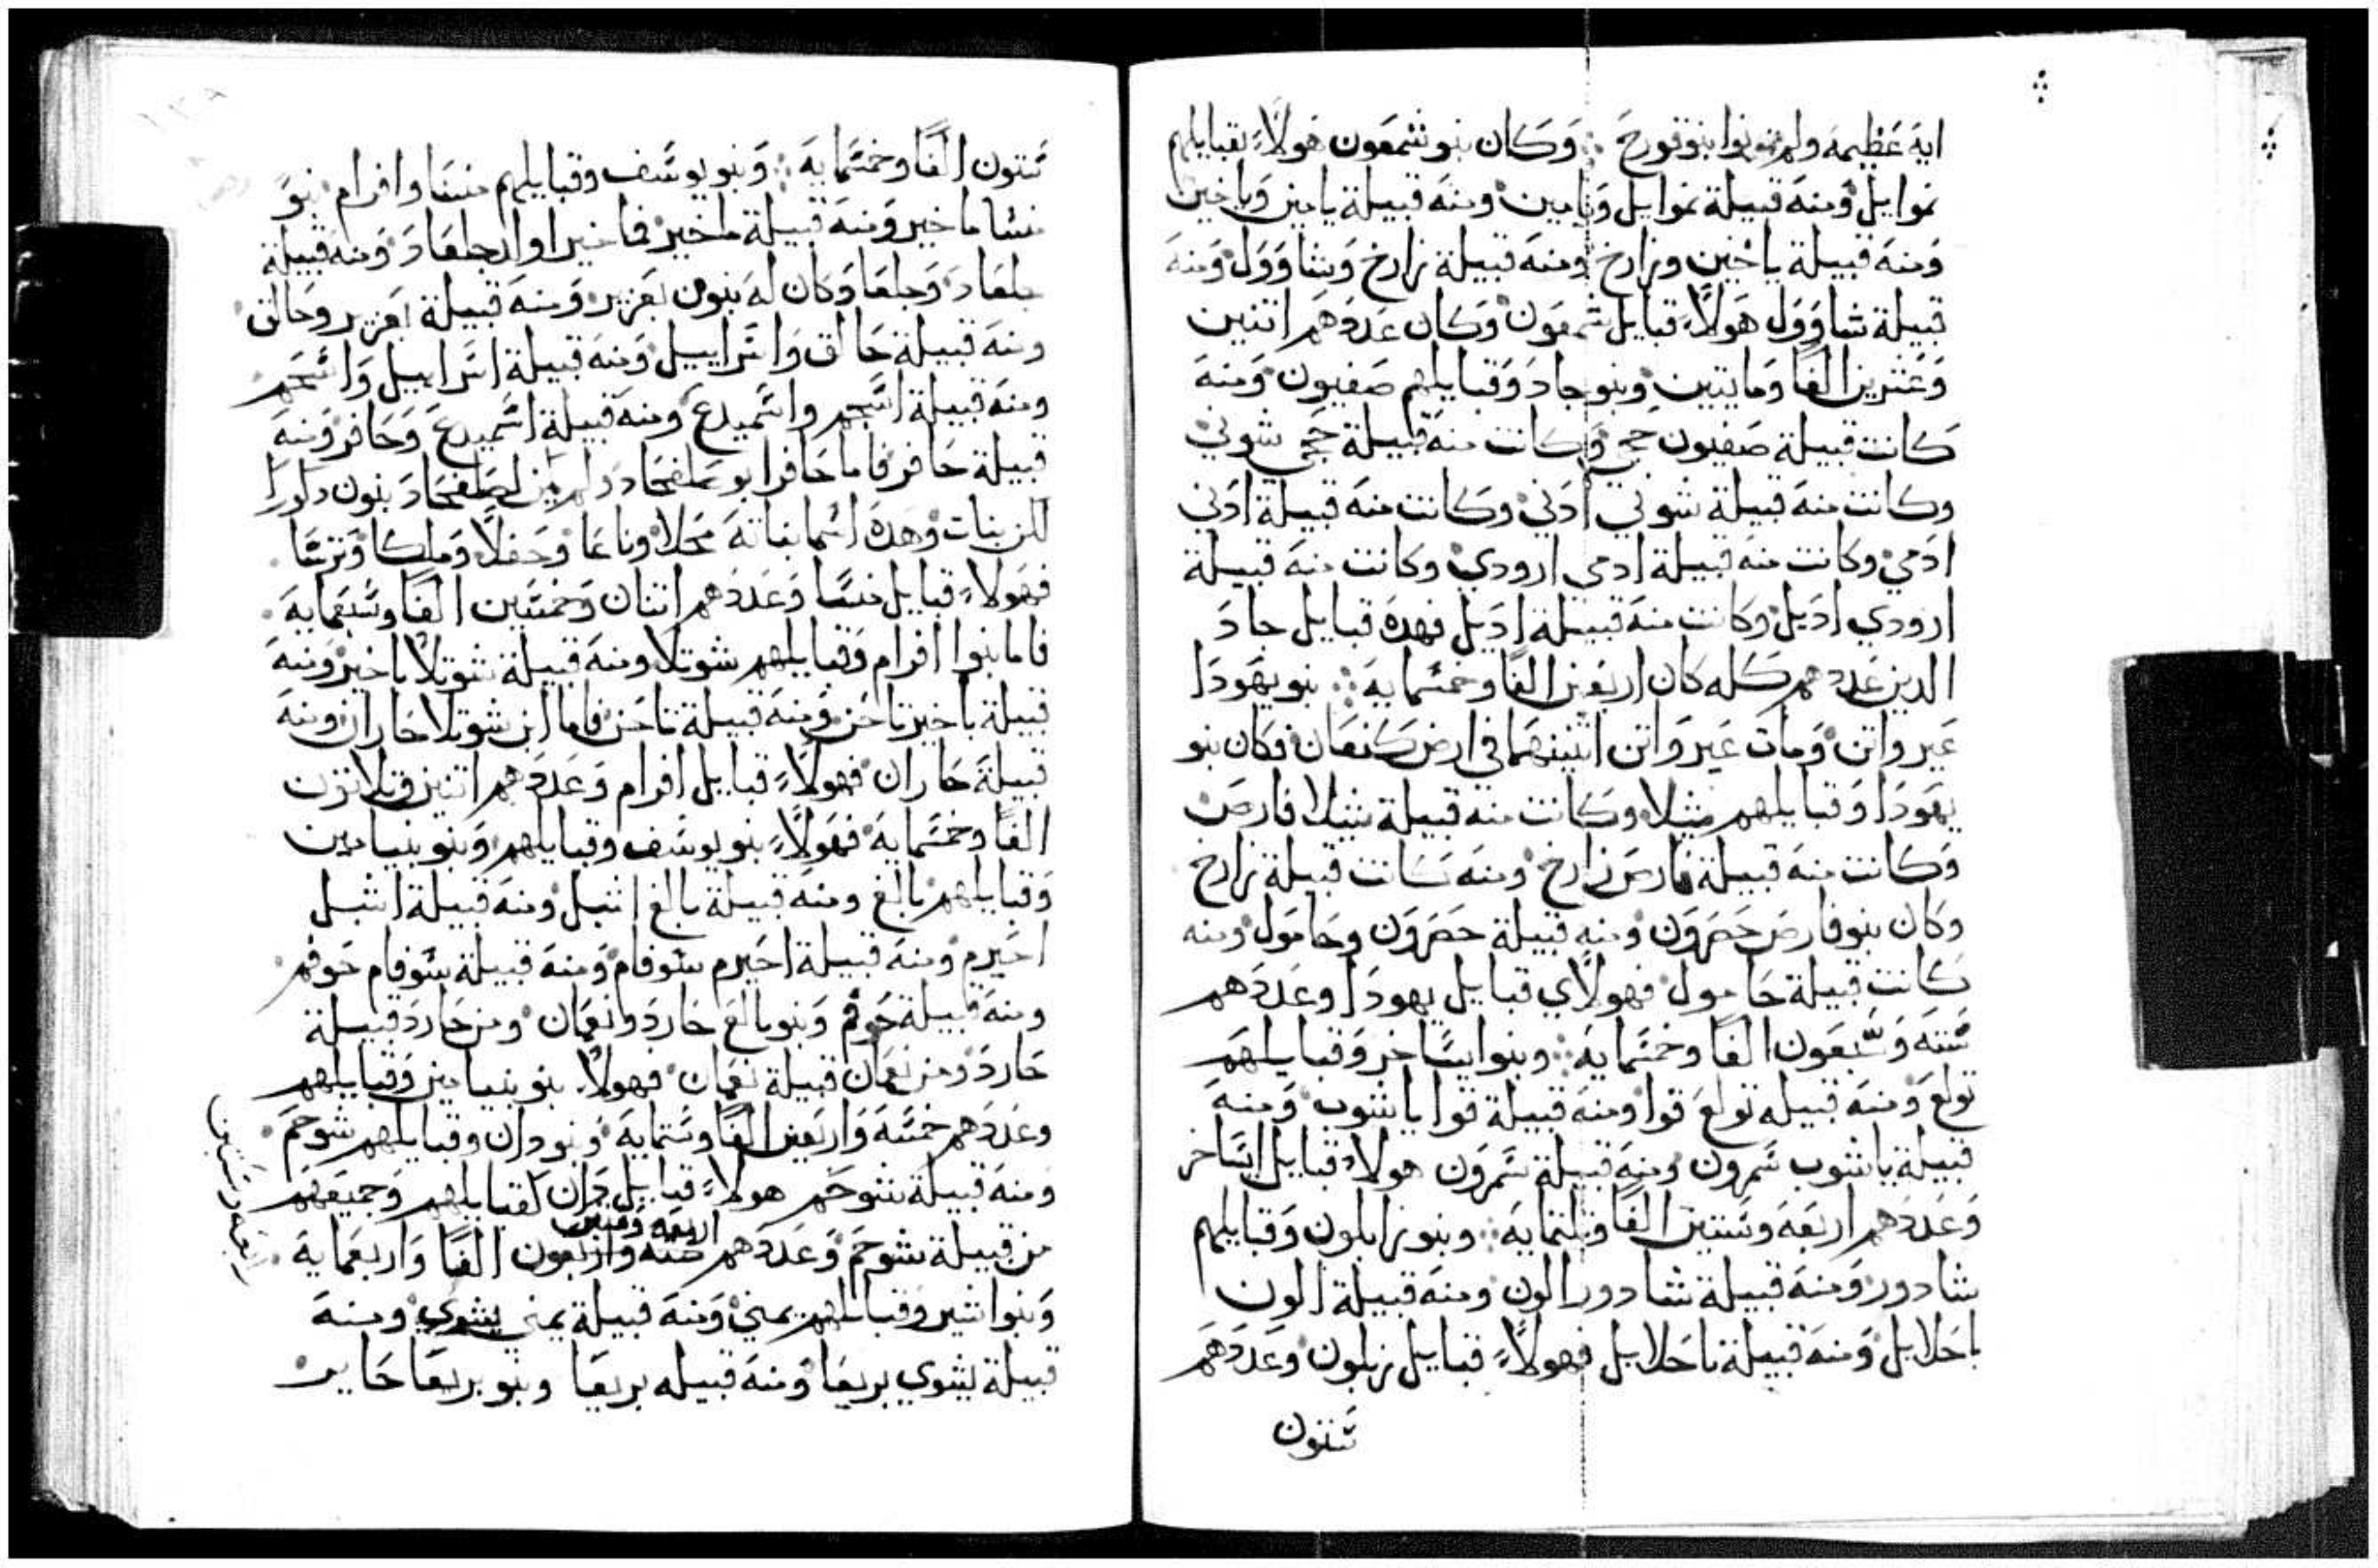 اية عظيمة ولم يموتوا بنو قورح ⁘ وكان بنو شمعون هولاء بقبايلهم
نموايل ومنه قبيلة نموايل ويامين ومنه قبيلة يامين وياخين
ومنه قبيلة ياخين وزارخ ومنه قبيلة زارخ وشاوول ومنه
قبيلة شاوول هولاء قبايل شمعون وكان عددهم اتنين
وعشرين الفا ومايتين وبنو جاد وقبايلهم صفيون ومنه
كانت قبيلة صفيون حجي وكانت منه قبيلة حجي شوني
وكانت منه قبيلة شوني ادني وكانت منه قبيلة ادني
ادمي وكانت منه قبيلة ادمي ارودي وكانت منه قبيلة
ارودي اديل وكانت منه قبيلة اديل فهده قبايل جاد
الدين عددهم كله كان اربعين الفا وخمسماية ⁘ بنو يهودا
عير واتن ومات عير واتن اتنينهما في ارض كنعان فكان بنو
يهودا وقبايلهم شلا وكانت منه قبيلة شلا فارص
وكانت منه قبيلة فارص زارخ ومنه كانت قبيلة زارخ
وكان بنو فارص حصرون ومنه قبيلة حصرون وحامول ومنه
كانت قبيلة حامول فهولاي قبايل يهودا وعددهم
ستة وسبعون الفا وخمسماية ⁘ وبنو ايساخر وقبايلهم
تولع ومنه قبيله تولع قوا ومنه قبيلة قوا ياشوب ومنه
قبيلة ياشوب سمرون ومنه قبيلة سمرون هولاء قبايل ايساخر
وعددهم اربعة وستين الفا وتلتماية ⁘ وبنو زابلون وقبايلهم
شادور ومنه قبيلة شادور الون ومنه قبيلة الون
ياحلايل ومنه قبيلة ياحلايل فهولاء قبايل زبلون وعددهم
ستون
ستون الفا وخمسماية ⁘ وبنو يوسف وقبايلهم منسا وافرام بنو
منشا ماخير ومنه قبيلة ماخير فاخير اولد جلعاد ومنه قبيلة
جلعاد وجلعاد كان له بنون يعزير ومنه قبيلة يعزير وحالق
ومنه قبيلة حالق واسراييل ومنه قبيلة اسراييل واشجم
ومنه قبيلة اشجم واسميدع ومنه قبيلة اسميدع وحافر ومنه
قبيلة حافر فاما حافر ابو صلفحاد ولم يكن لصلفحاد بنون دكورا
لكن بنات وهده اسما بناته محلا وناعا وحغلا وملكا وترسا
فهولاء قبايل منسا وعددهم اتنان وخمسين الفا وسبعماية
فاما بنوا افرام وقبايلهم شوتلا ومنه قبيلة شوتلا ياخير ومنه
قبيلة ياخير تاحن ومنه قبيلة تاحن فاما ابن شوتلا حاران ومنه
قبيلة حاران فهولاء قبايل افرام وعددهم اتنين وتلاتون
الفا وخمسماية فهولاء بنو يوسف وقبايلهم وبنو بنيامين
وقبايلهم بالغ ومنه قبيلة بالغ اشبل ومنه قبيلة اشبل
احيرم ومنه قبيلة احيرم شوفام ومنه قبيلة شوفام حوفم
ومنه قبيلة حوفم وبنو بالغ حارد ونعمان ومن حارد قبيلة
حارد ومن نعمان قبيلة نعمان فهولاء بنو بنيامين وقبايلهم
وعددهم خمسة واربعين الفا وستماية وبنو دان وقبايلهم شوحم
ومنه قبيلة شوحم هولاء قبايل دان لقبايلهم وجميعهم
اربعة وستين
من قبيلة شوحم وعددهم ستة واربعون الفا واربعماية
اربعة وستين
وبنو اشير وقبايلهم يمني ومنه قبيلة يمني يشوي ومنه
قبيلة يشوي بريعا ومنه قبيله بريعا وبنو بريعا حابر